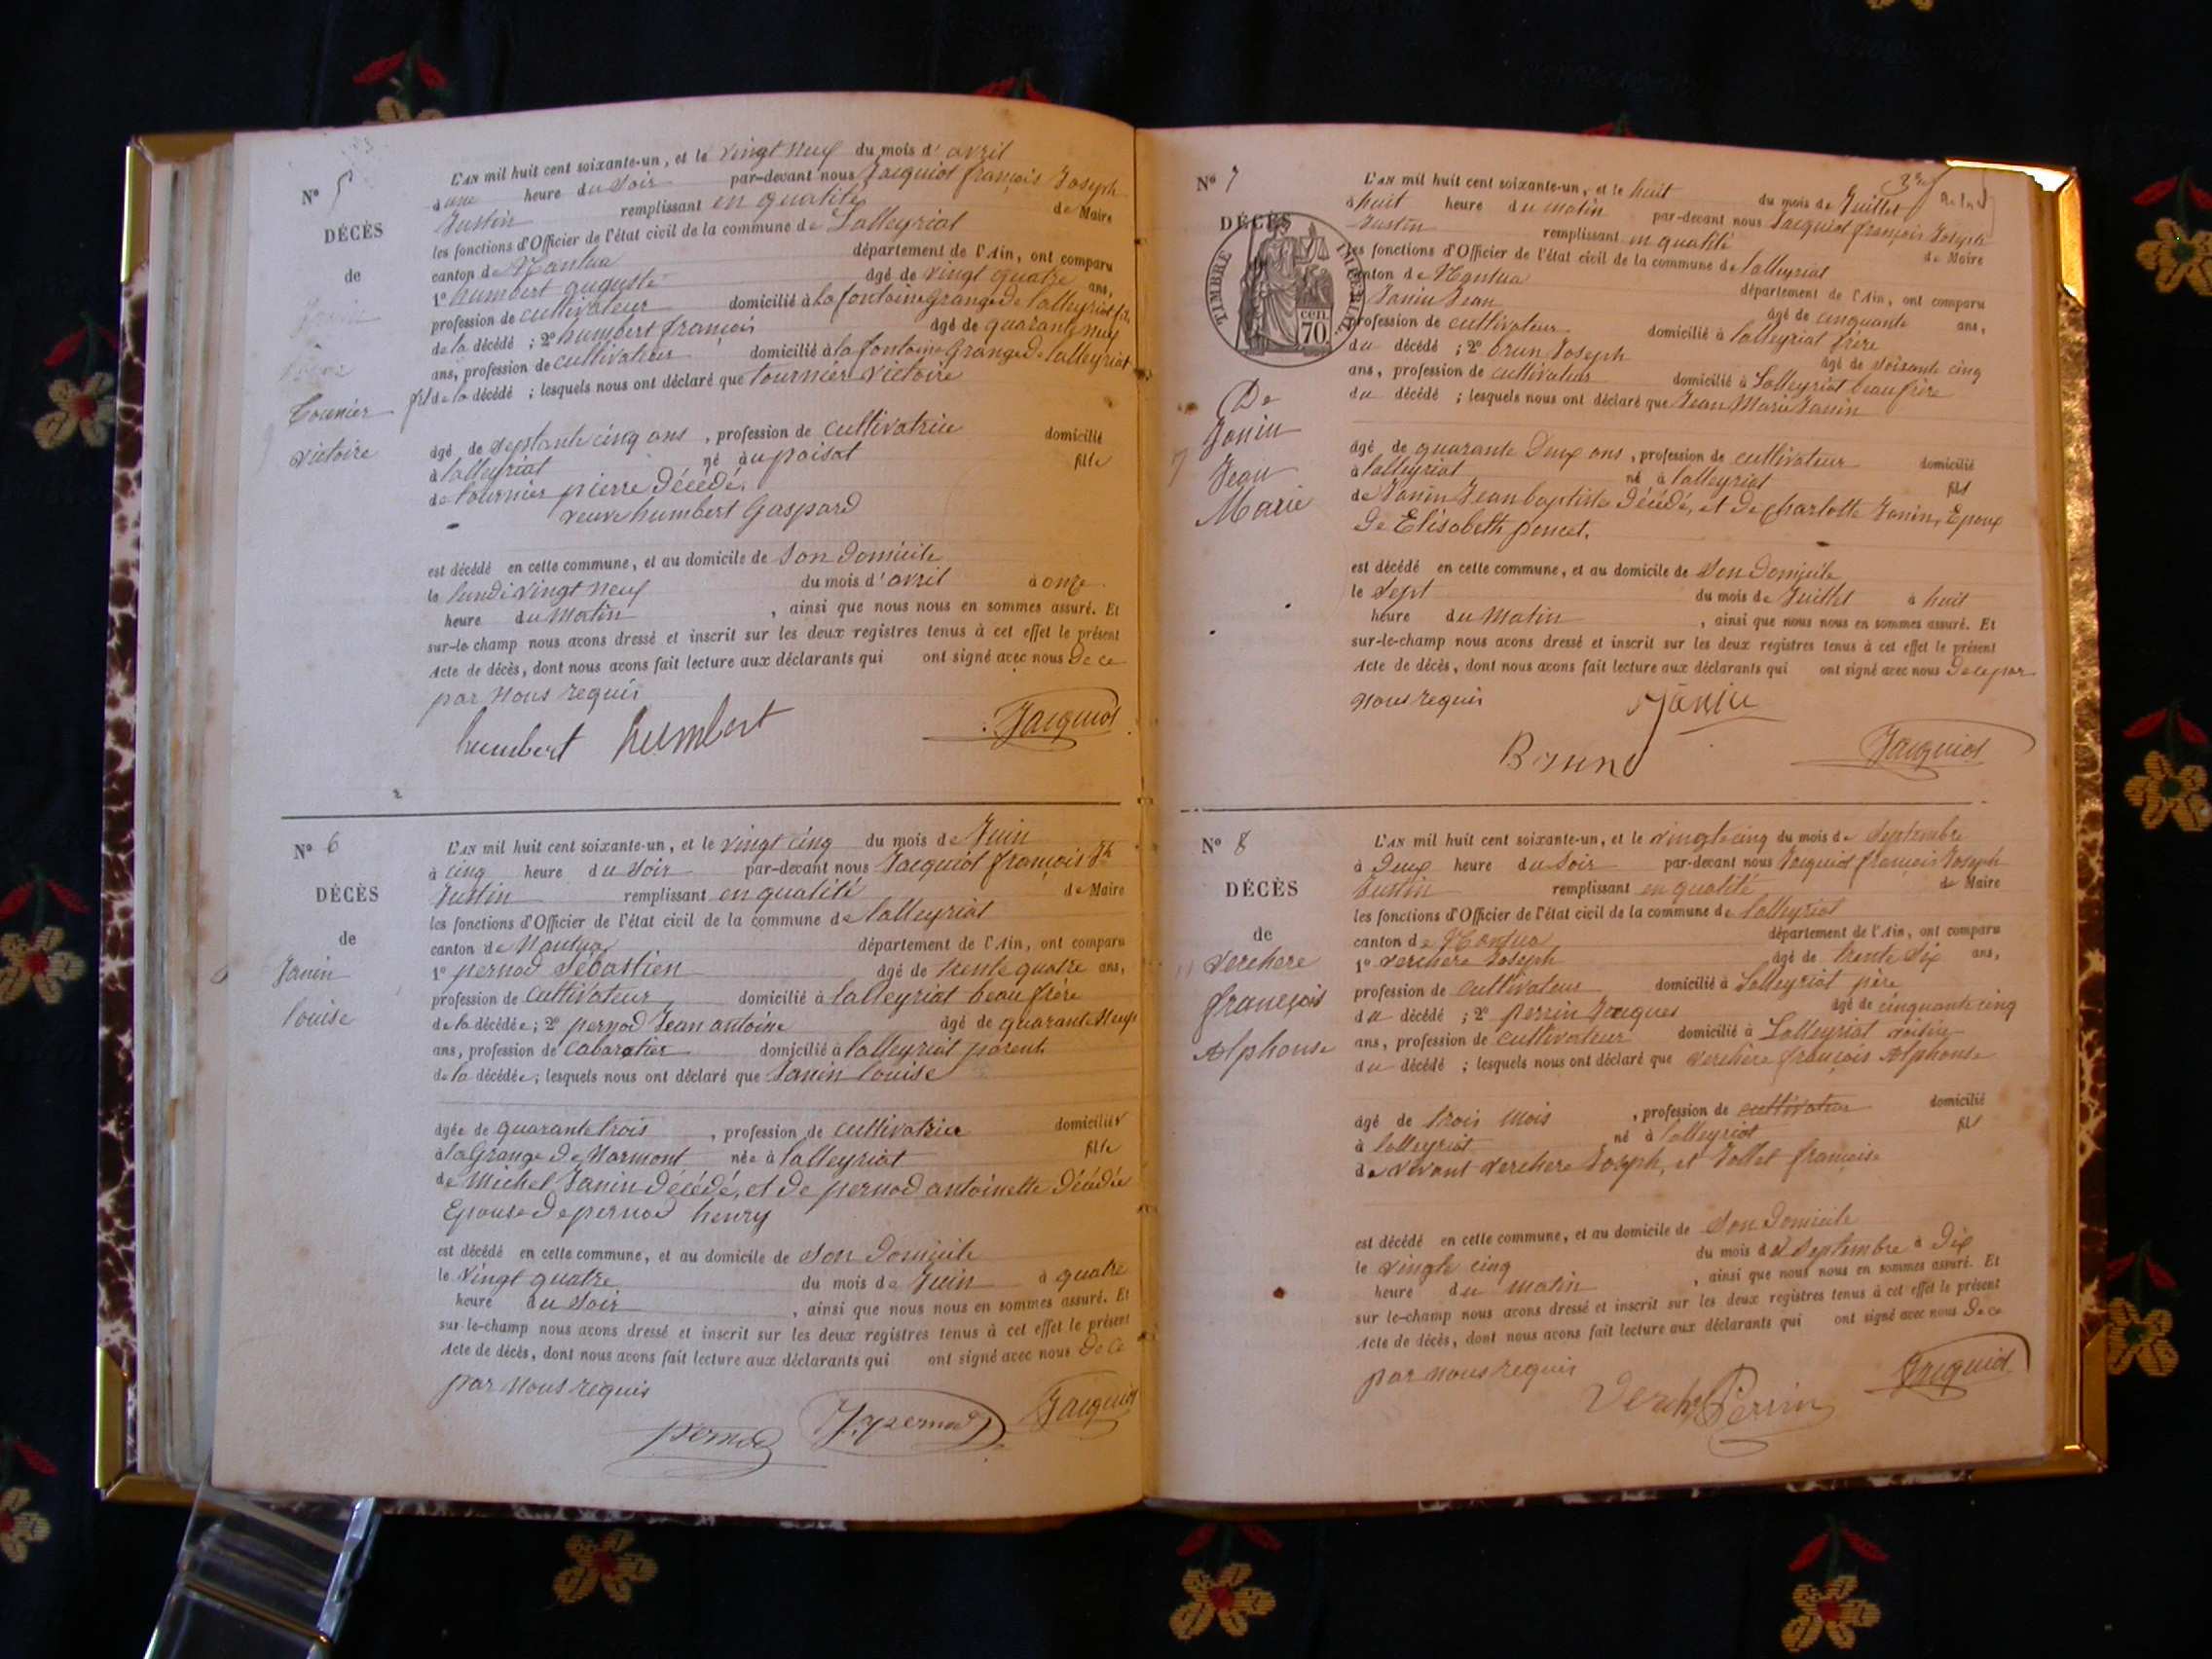 N° 5
DÉCÈS
de
Tournier
victoire
L'AN mil huit cent soixante-un, et le vingt neuf du mois d'avril
à une heure du Soir par-devant nous Jacquiot françois Joseph
Justin remplissant en qualité de Maire
les fonctions d'Officier de l'état civil de la commune de Lalleyriat
canton de Nantua département de l'Ain, ont comparu
1° humbert auguste âgé de vingt quatre ans,
profession de cultivateur domicilié à la fontaine Grange de lalleyriat fils
de la décédé ; 2° humbert françois âgé de quarante neuf
ans, profession de cultivateur domicilié à la fontaine Grange de lalleyriat
fil de la décédé ; lesquels nous ont déclaré que tournier victoire
âgé de septante cinq ans, profession de cultivatrice domicilié
à lalleyriat né à u poisat fille
de tournier pierre décédé,
veuve humbert Gaspard
est décédé en cette commune, et au domicile de Son domicile
le lundi vingt neuf du mois d'avril à onze
heure du Matin, ainsi que nous nous en sommes assuré. Et
sur-le champ nous avons dressé et inscrit sur les deux registres tenus à cet effet le présent
Acte de décès, dont nous avons fait lecture aux déclarants qui ont signé avec nous de ce
par Nous requis
humbert humbert Jacquiot
N° 6
DÉCÈS
de
Janin
louise
L'AN mil huit cent soixante-un, et le vingt cinq du mois de Juin
à cinq heure du Soir par-devant nous Jacquiot françois Jh
Justin remplissant en qualité de Maire
les fonctions d'Officier de l'état civil de la commune de lalleyriat
canton de Nantua département de l'Ain, ont comparu
1° pernod Sébastien âgé de trente quatre ans,
profession de cultivateur domicilié à lalleyriat beau frère
de la décédée; 2° pernod Jean antoine âgé de quarante neuf
ans, profession de cabaretier domicilié à lalleyriat parent
de la décédée; lesquels nous ont déclaré que Janin louise
âgée de quarante trois, profession de cultivatrice domiciliée
à la Grange de Marmont née à lalleyriat fille
de Michel Janin décédé, et de pernod antoinette décédée
Epouse de pernod henry
est décédé en cette commune, et au domicile de Son domicile
le vingt quatre du mois de Juin à quatre
heure du Soir, ainsi que nous nous en sommes assuré. Et
sur le-champ nous avons dressé et inscrit sur les deux registres tenus à cet effet le présent
Acte de décès, dont nous avons fait lecture aux déclarants qui ont signé avec nous de ce
par Nous requis
pernod J. pernod Jacquiot
N° 7
DÉCÈS
TIMBRE IMPÉRIAL
70 cen.
De
Janin
Jean
Marie
L'AN mil huit cent soixante-un, et le huit du mois de Juillet
à huit heure du matin par-devant nous Jacquiot françois Joseph
Justin remplissant en qualité de Maire
les fonctions d'Officier de l'état civil de la commune de lalleyriat
canton de Nantua département de l'Ain, ont comparu
Janin Jean âgé de cinquante ans,
profession de cultivateur domicilié à lalleyriat frère
du décédé ; 2° brun Joseph âgé de soixante cinq
ans, profession de cultivateur domicilié à Lalleyriat beau frère
du décédé ; lesquels nous ont déclaré que Jean Marie Janin
âgé de quarante deux ans, profession de cultivateur domicilié
à lalleyriat né à lalleyriat fils
de Janin Jean baptiste décédé, et de charlotte Janin, Epoux
de Elisabeth poncet,
est décédé en cette commune, et au domicile de Son domicile
le Sept du mois de Juillet à huit
heure du Matin, ainsi que nous nous en sommes assuré. Et
sur-le-champ nous avons dressé et inscrit sur les deux registres tenus à cet effet le présent
Acte de décès, dont nous avons fait lecture aux déclarants qui ont signé avec nous de ce par
Nous requis Janin
Brun Jacquiot
N° 8
DÉCÈS
de
verchere
françois
Alphonse
L'AN mil huit cent soixante-un, et le vingt cinq du mois de Septembre
à Deux heure du Soir par-devant nous Jacquiot françois Joseph
Justin remplissant en qualité de Maire
les fonctions d'Officier de l'état civil de la commune de lalleyriat
canton de Nantua département de l'Ain, ont comparu
1° verchere Joseph âgé de trente Six ans,
profession de cultivateur domicilié à Lalleyriat père
du décédé ; 2° perrin Jacques âgé de cinquante cinq
ans, profession de cultivateur domicilié à Lalleyriat voisin
du décédé ; lesquels nous ont déclaré que verchère françois Alphonse
âgé de trois mois, profession de cultivateur domicilié
à lalleyriat né à lalleyriat fils
de vivant verchere Joseph, et Jollet françoise
est décédé en cette commune, et au domicile de Son domicile
le vingt cinq du mois de Septembre à Dix
heure du matin, ainsi que nous nous en sommes assuré. Et
sur le-champ nous avons dressé et inscrit sur les deux registres tenus à cet effet le présent
Acte de décès, dont nous avons fait lecture aux déclarants qui ont signé avec nous de ce
par nous requis
Perrin Jacquiot